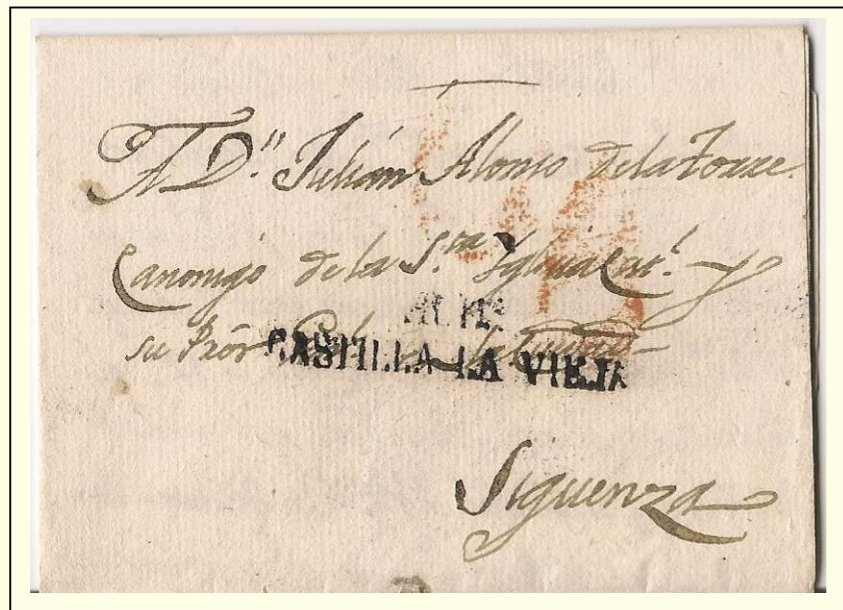 A Dn. Julián Alonso de la Torre
Canonigo de la Sta. Yglesia Catl. y
su Prôr
CASTILLA LA VIEJA
Siguenza